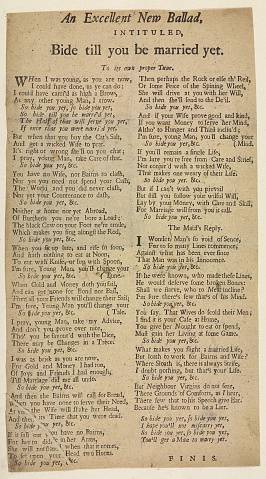 An Excellent New Ballad,
INTITULED,
Bide till you be married yet.
To its own proper Tune.
WHen I was young, as you are now,
I could have done, as you can do;
I could have carri'd as high a Brow,
As any other young Man, I trow.
So bide you yet, so bide you yet,
So bide till you be marri'd yet,
The Half of that will serve you yet,
If once that you were marri'd yet.
But when that you buy the Cat's Salt,
And get a wicked Wife to prat,
It's right or wrong she'll on you chat;
I pray, young Man, take Care of that.
So bide you yet, &c.
You have no Wife, nor Bairns to clath,
Nor yet you need not spend your Cash,
The World, and you did never clash,
Nor yet your Countenance to dash,
So bide you yet, &c.
Neither at home nor yet Abroad,
Of Burthens you ne're bore a Load:
The black Cow on your Foot ne're trode,
Which makes you sing alang the Rod,
So bide you yet, &c.
When you sleep late, and rise fit soon,
And hath nothing to eat at Noon,
To eat with or sup with Spoon,
I'm sure, Young Man, you'll change your
So bide you yet, &c. Tune.
When Gold and Money doth you fail,
And can get none for Bond nor Bail,
Then all your Friends will change their Sail;
I'm sure, Young Man you'll change your
So bide you yet, &c. (Tale.
I pray, young Man, take my Advice,
And don't you prove over nice,
Tho' you be favour'd with the Dice,
There may be Changes in a Trice:
So bide you yet, &c.
I was as brisk as you are now,
For Gold and Money I had too,
Of Joys and Friends I had enough,
Till Marriage did me all undo.
So bide you yet, &c.
And then the Bairns will call for Bread,
When you have none to leave their Need,
the Wife will shake her Head,
And then in Time that you were dead.
So bide you yet, &c.
you have no Bairns,
her Arms,
when that it comes,
Head two Horns.
So bide you yet, &c.
Then perhaps the Rock or else th' Reel,
Or some Peice of the Spining Wheel,
She will drive at you with her Will,
And then she'll send to the De'il.
So bide you yet, &c.
And if your Wife prove good and kind,
If you want Money to serve her Mind,
Altho' to Hunger and Thirst inclin'd;
I'm sure, young Man, you'll change your
So bide you yet, &c. (Mind.
If you'll remain a single Life,
I'm sure you're free from Care and Strife,
Not conjoin'd with a wicked Wife,
That makes one weary of their Life.
So bide you yet, &c.
But if I can't with you prevail
But still you follow your wilful Will,
Lay by your Money, with Care and Skill,
For Marriage will from you it call.
So bide you yet, &c.
The Maid's Reply.
I Wonder Man's so void of Sense,
For to so many Lines commence,
Against what has been ever since
That Man was in his Innocence.
So bide you yet, &c.
If he were known, who made these Lines,
He would deserve some broken Bones:
Shall we starve, who to Men incline?
I'm sure there's few that's of his Mind.
So bide you yet, &c.
You say, That Wives do scold their Men;
I find it is your Case at Hame,
You give her Nought to eat or spend,
Must gain her Living at some Game.
So bide you yet, &c.
What makes you slight a married Life,
But loath to work for Bairns and Wife?
Where Sloath is, there is always Strife,
I doubt nothing, but that's your Life.
So bide you yet, &c.
But Neighbour Virgins do not fear,
There Grounds of Comforts, as I hear,
There few that tolls Speech give Ear.
Because he's known to be a Liar.
So bide you yet, so bide you yet,
I hope you'll not miscarry yet,
So bide you yet, so bide you yet,
You'll get a Man to marry yet.
FINIS.